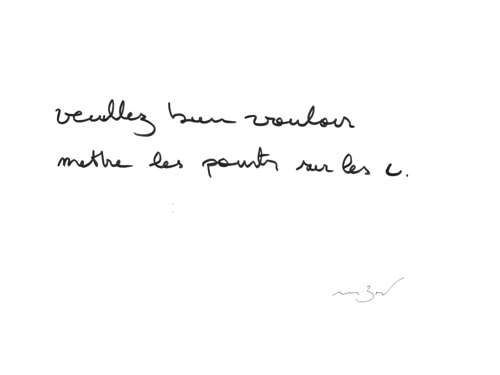 veuillez bien vouloir
mettre les points sur les i.